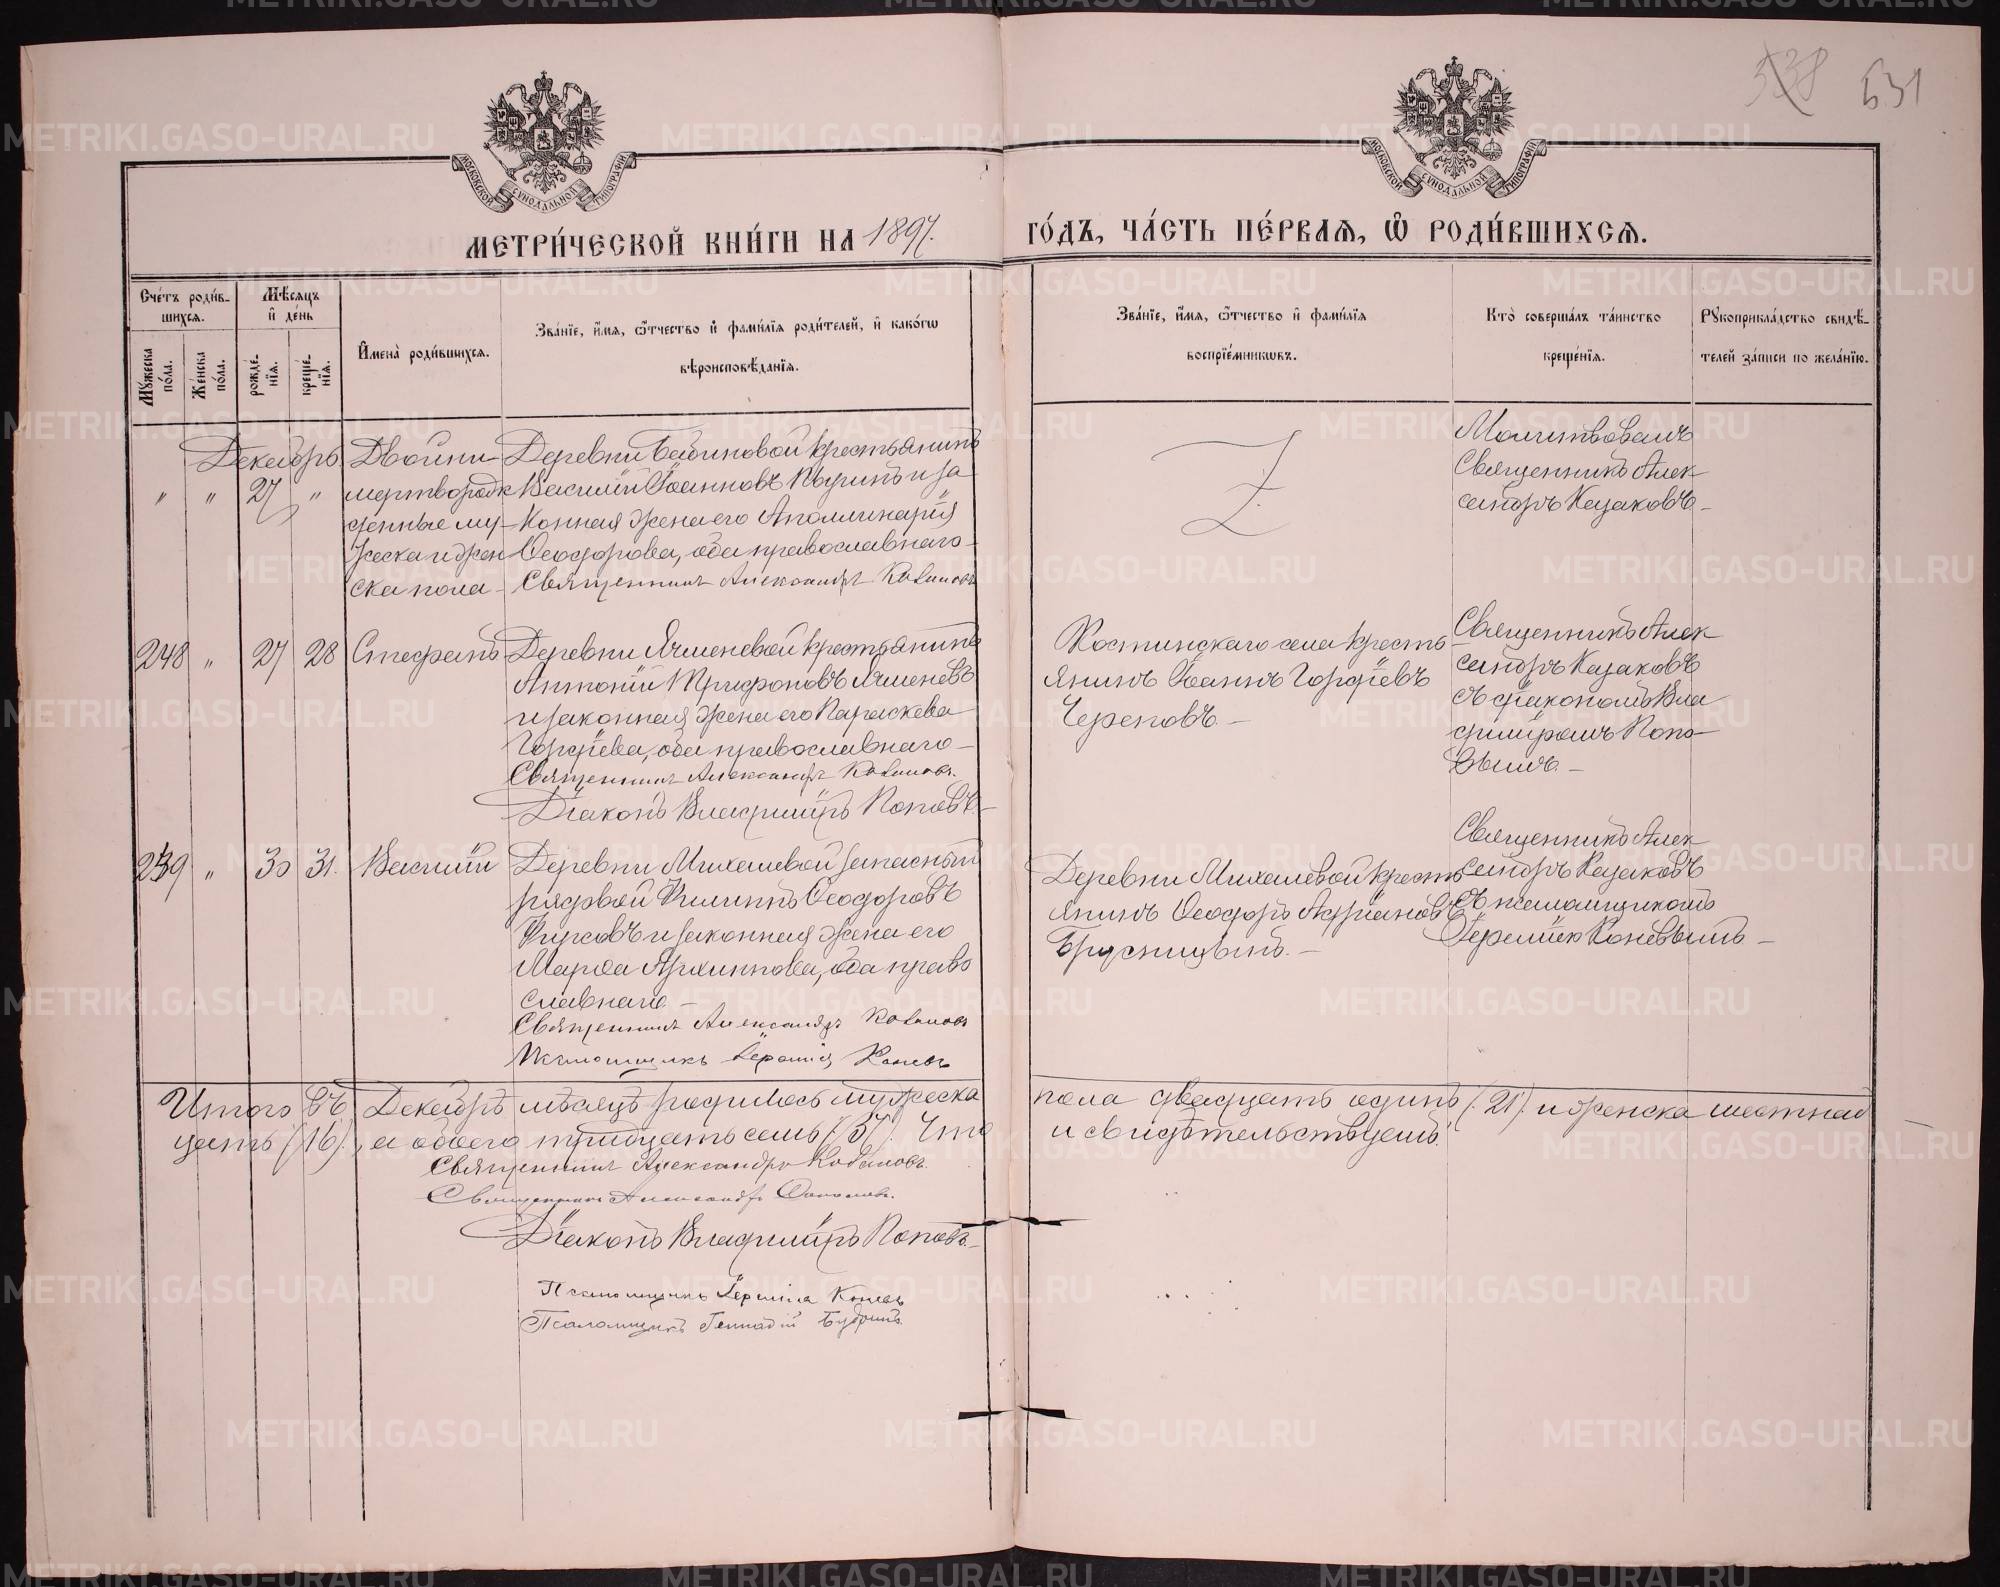 538 531
МОСКОВСКОЙ СУНОДАЛЬНОЙ ТИПОГРАФИИ
МОСКОВСКОЙ СУНОДАЛЬНОЙ ТИПОГРАФИИ
МЕТРИ́ЧЕСКОЙ КНИ́ГИ НА 1897. ГО́ДЪ, ЧА́СТЬ ПЕ́РВАѦ, Ѽ РОДИ́ВШИХСѦ.
Счétъ роди́в-
шихсѧ.
Мꙋ́жеска по́ла.
Же́нска по́ла.
Мѣ́сяцъ
и҆ де́нь
рожде́-нїѧ.
креще́-нїѧ.
И҆мена̀ роди́вшихсѧ.
Зва́нїе, и҆́мѧ, ѻ҆́тчество и҆ фами́лїѧ роди́телей, и҆ како́гѡ
вѣроисповѣ́данїѧ.
Зва́нїе, и҆́мѧ, ѻ҆́тчество и҆ фами́лїѧ
воспрїе́мникѡвъ.
Кто̀ соверша́лъ та́инство
креще́нїѧ.
Рꙋкоприкла́дство свидѣ́-
телей за́писи по жела́нїю.
Декабрь
" " 27 "
Двойни
мертворож
денные му
жеска и жен
ска пола
Деревни Бабиновой крестьянинъ
Василій Іоанновъ и за
конная жена его Аполлинарія
Ѳеодорова, оба православнаго
Священникъ Александръ Казаковъ
Молитвовалъ
Священникъ Алек
сандръ Казаковъ
248 " 27 28 Стефанъ
Деревни Ячменевой крестьянинъ
Антоній Трифоновъ Ячменевъ
и законная жена его Параскева
Гордіева, оба православнаго
Священникъ Александръ Казаковъ.
Діаконъ Владиміръ Поповъ
Костинскаго села кресть
янинъ Іоаннъ Гордіевъ
Череповъ
Священникъ Алек
сандръ Казаковъ
съ діакономъ Вла
диміромъ Попо
вымъ.
249 " 30 31. Василій
Деревни Михалевой запасный
рядовой Филиппъ Ѳеодоровъ
и законная жена его
Марѳа Архиппова, оба право
славнаго
Священникъ Александръ Казаковъ
Псаломщикъ Іеремія Коневъ
Деревни Михалевой кресть
янинъ Ѳеодоръ Адріановъ
Брусницынъ.
Священникъ Алек
сандръ Казаковъ
съ псаломщикомъ
Іереміею Коневымъ
Итого въ Декабрѣ мѣсяцѣ родилось мужеска пола двадцать одинъ (21) и женска шестнад
цать (16), а обоего тридцать семь (37). Что и свидѣтельствуемъ.
Священникъ Александръ Казаковъ.
Священникъ Александръ
Діаконъ Владиміръ Поповъ
Псаломщикъ Іеремія Коневъ
Псаломщикъ Геннадій Бубринъ
METRIKI.GASO-URAL.RU